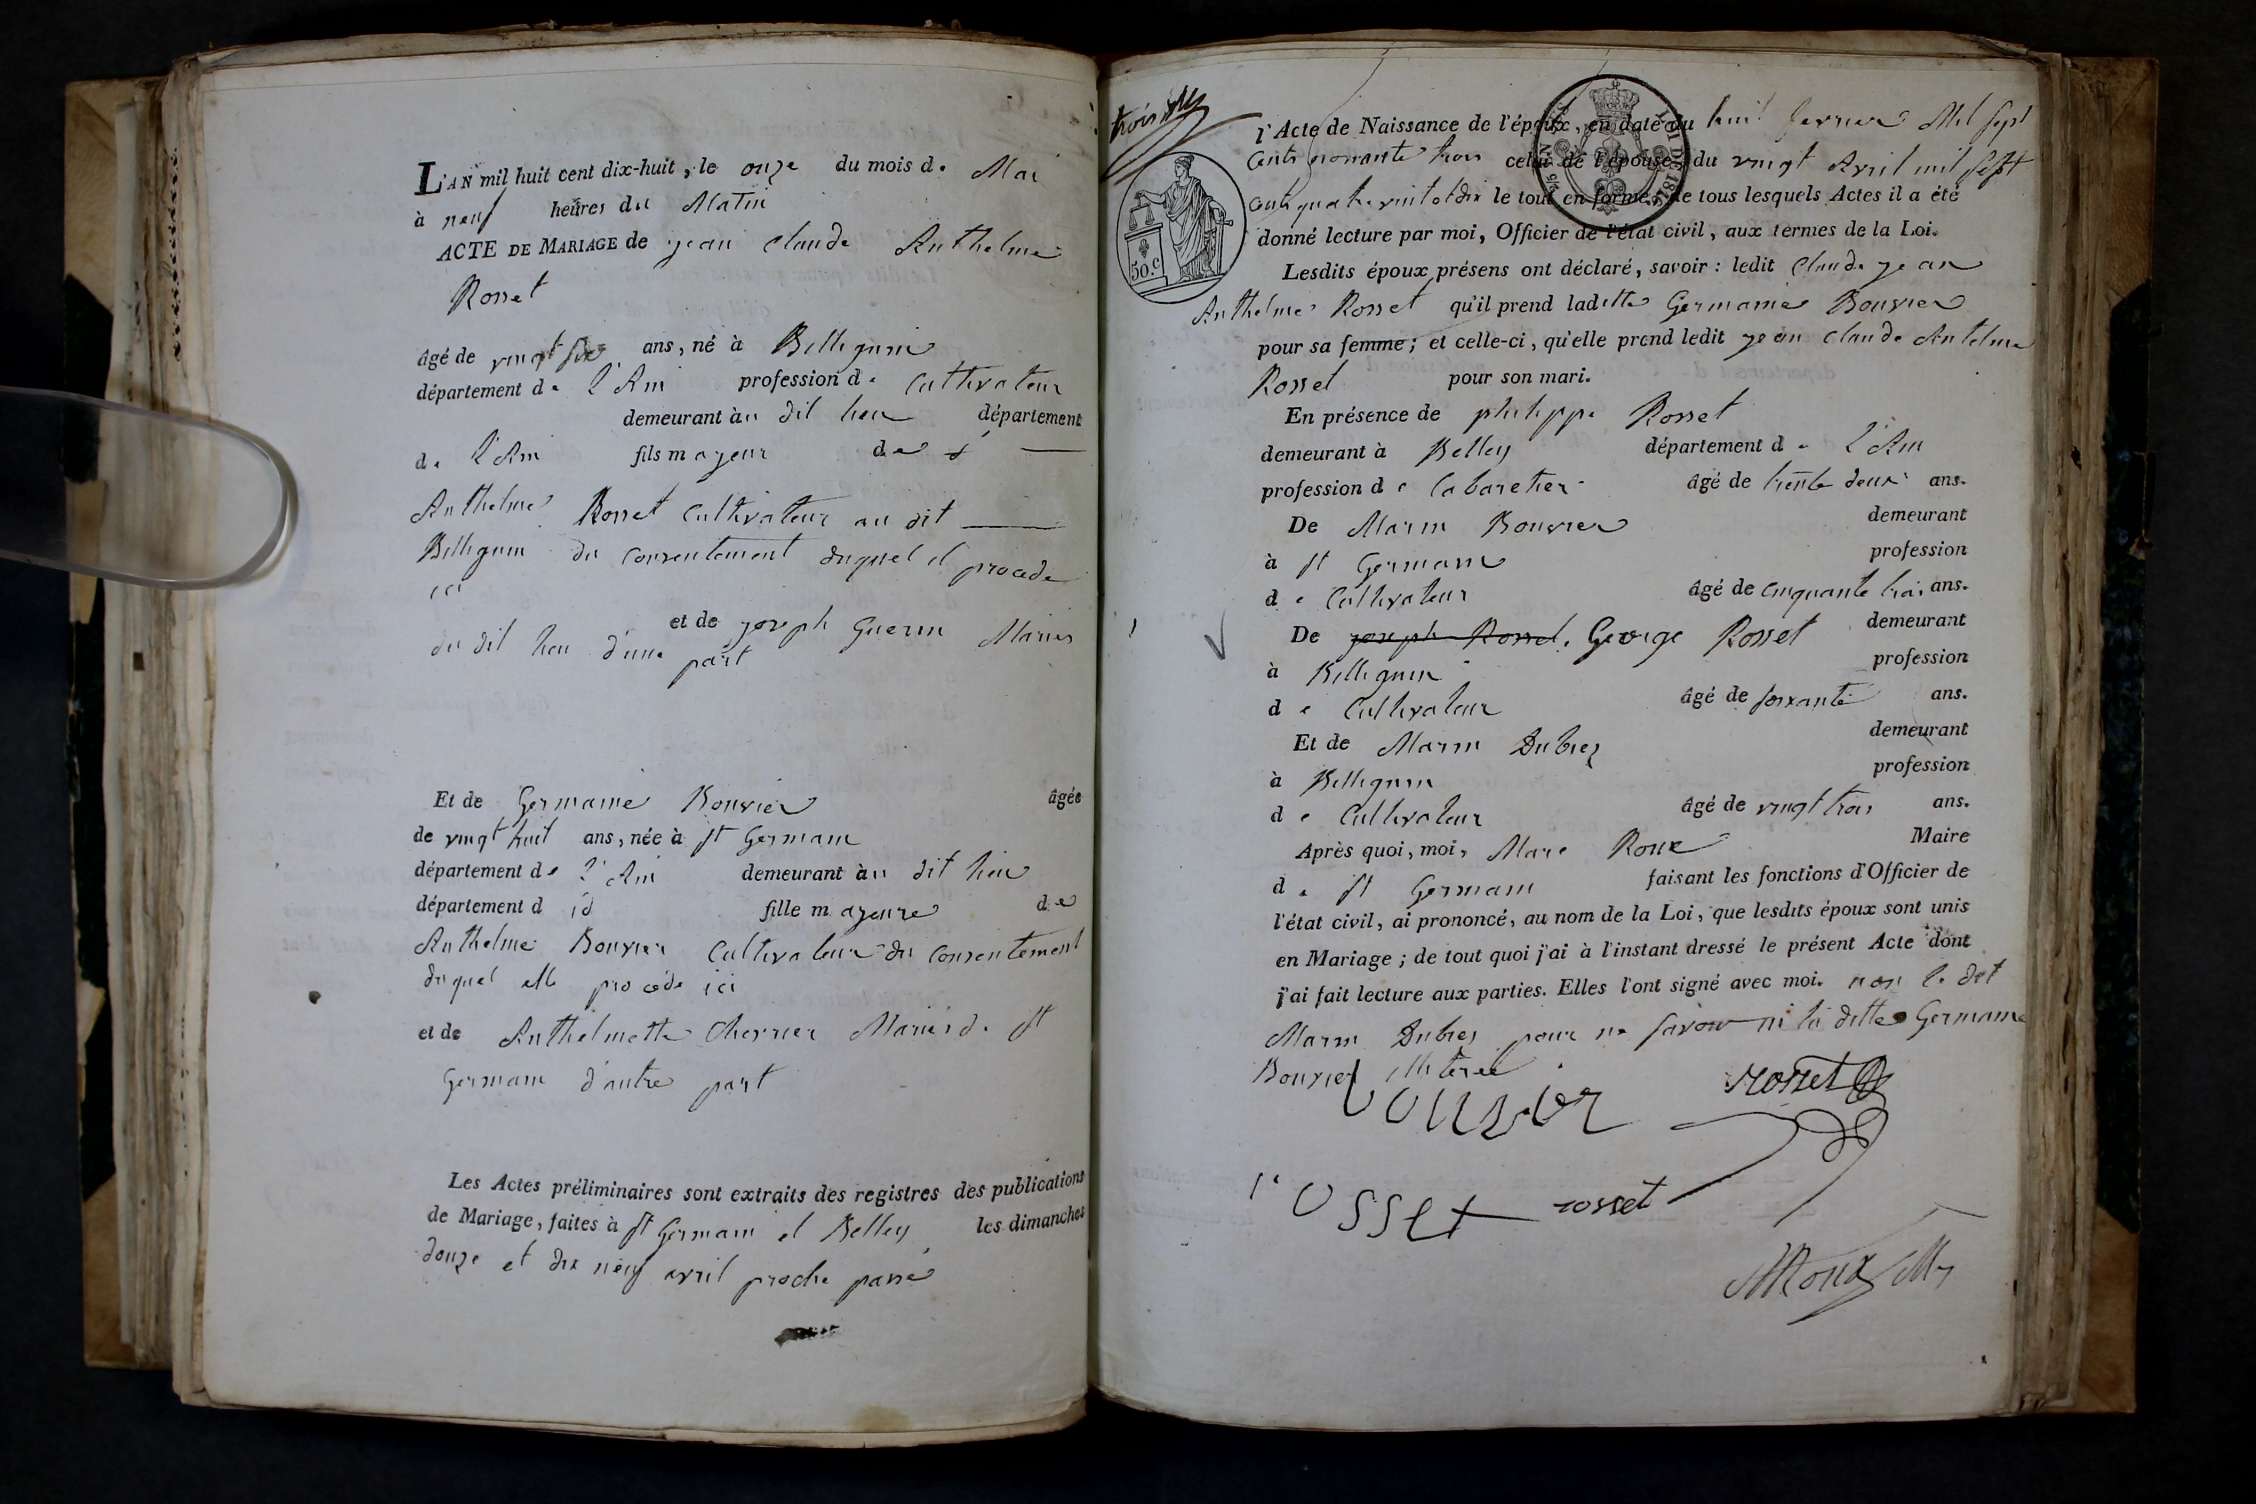 L'AN mil huit cent dix-huit, le onze du mois de Mai
à neuf heures du Matin
ACTE DE MARIAGE de jean Claude Anthelme
Rosset
âgé de vingt six ans, né à Billignin
département de l'Ain profession de Cultivateur
demeurant au dit lieu département
de l'Ain fils mageur de
Anthelme Rosset Cultivateur au dit
Billignin du consentement duquel il procede
ici
et de joseph Guerin Mariés
du dit lieu d'une part
Et de Germaine Bouvier âgée
de vingt huit ans, née à St Germain
département de l'Ain demeurant au dit lieu
département d id fille mageure de
Anthelme Bouvier Cultivateur du consentement
duquel elle procede ici
et de Anthelmette Chervier Mariés de St
Germain d'autre part
Les Actes préliminaires sont extraits des registres des publications
de Mariage, faites à St Germain et Belley les dimanches
douze et dix neuf avril proche passé
l'Acte de Naissance de l'époux, en date du huit fevrier Mil sept
Cents nonante trois celui de l'épouse, du vingt Avril mil sept
Cents quatre vint et dix le tout en forme; de tous lesquels Actes il a été
donné lecture par moi, Officier de l'état civil, aux termes de la Loi.
50.c
LOI DE 18
Lesdits époux présens ont déclaré, savoir: ledit Claude jean
Anthelme Rosset qu'il prend laditte Germaine Bouvier
pour sa femme; et celle-ci, qu'elle prend ledit jean Claude Antelme
Rosset pour son mari.
En présence de philippe Rosset
demeurant à Belley département de l'Ain
profession de Cabaretier âgé de trente deux ans.
De Marin Bouvier demeurant
à St Germain profession
de Cultivateur âgé de cinquante trois ans.
De joseph Rosset. George Rosset demeurant
à Billignin profession
de Cultivateur âgé de soixante ans.
Et de Marin Dubrez demeurant
à Billignin profession
de Cultivateur âgé de vingt trois ans.
Après quoi, moi, Marc Roux Maire
de St Germain faisant les fonctions d'Officier de
l'état civil, ai prononcé, au nom de la Loi, que lesdits époux sont unis
en Mariage; de tout quoi j'ai à l'instant dressé le présent Acte dont
j'ai fait lecture aux parties. Elles l'ont signé avec moi. non le dit
Marin Dubrez pour ne savoir ni la ditte Germaine
Bouvier illiterée
bouvier rosset
rosset rosset
MRoux Mre